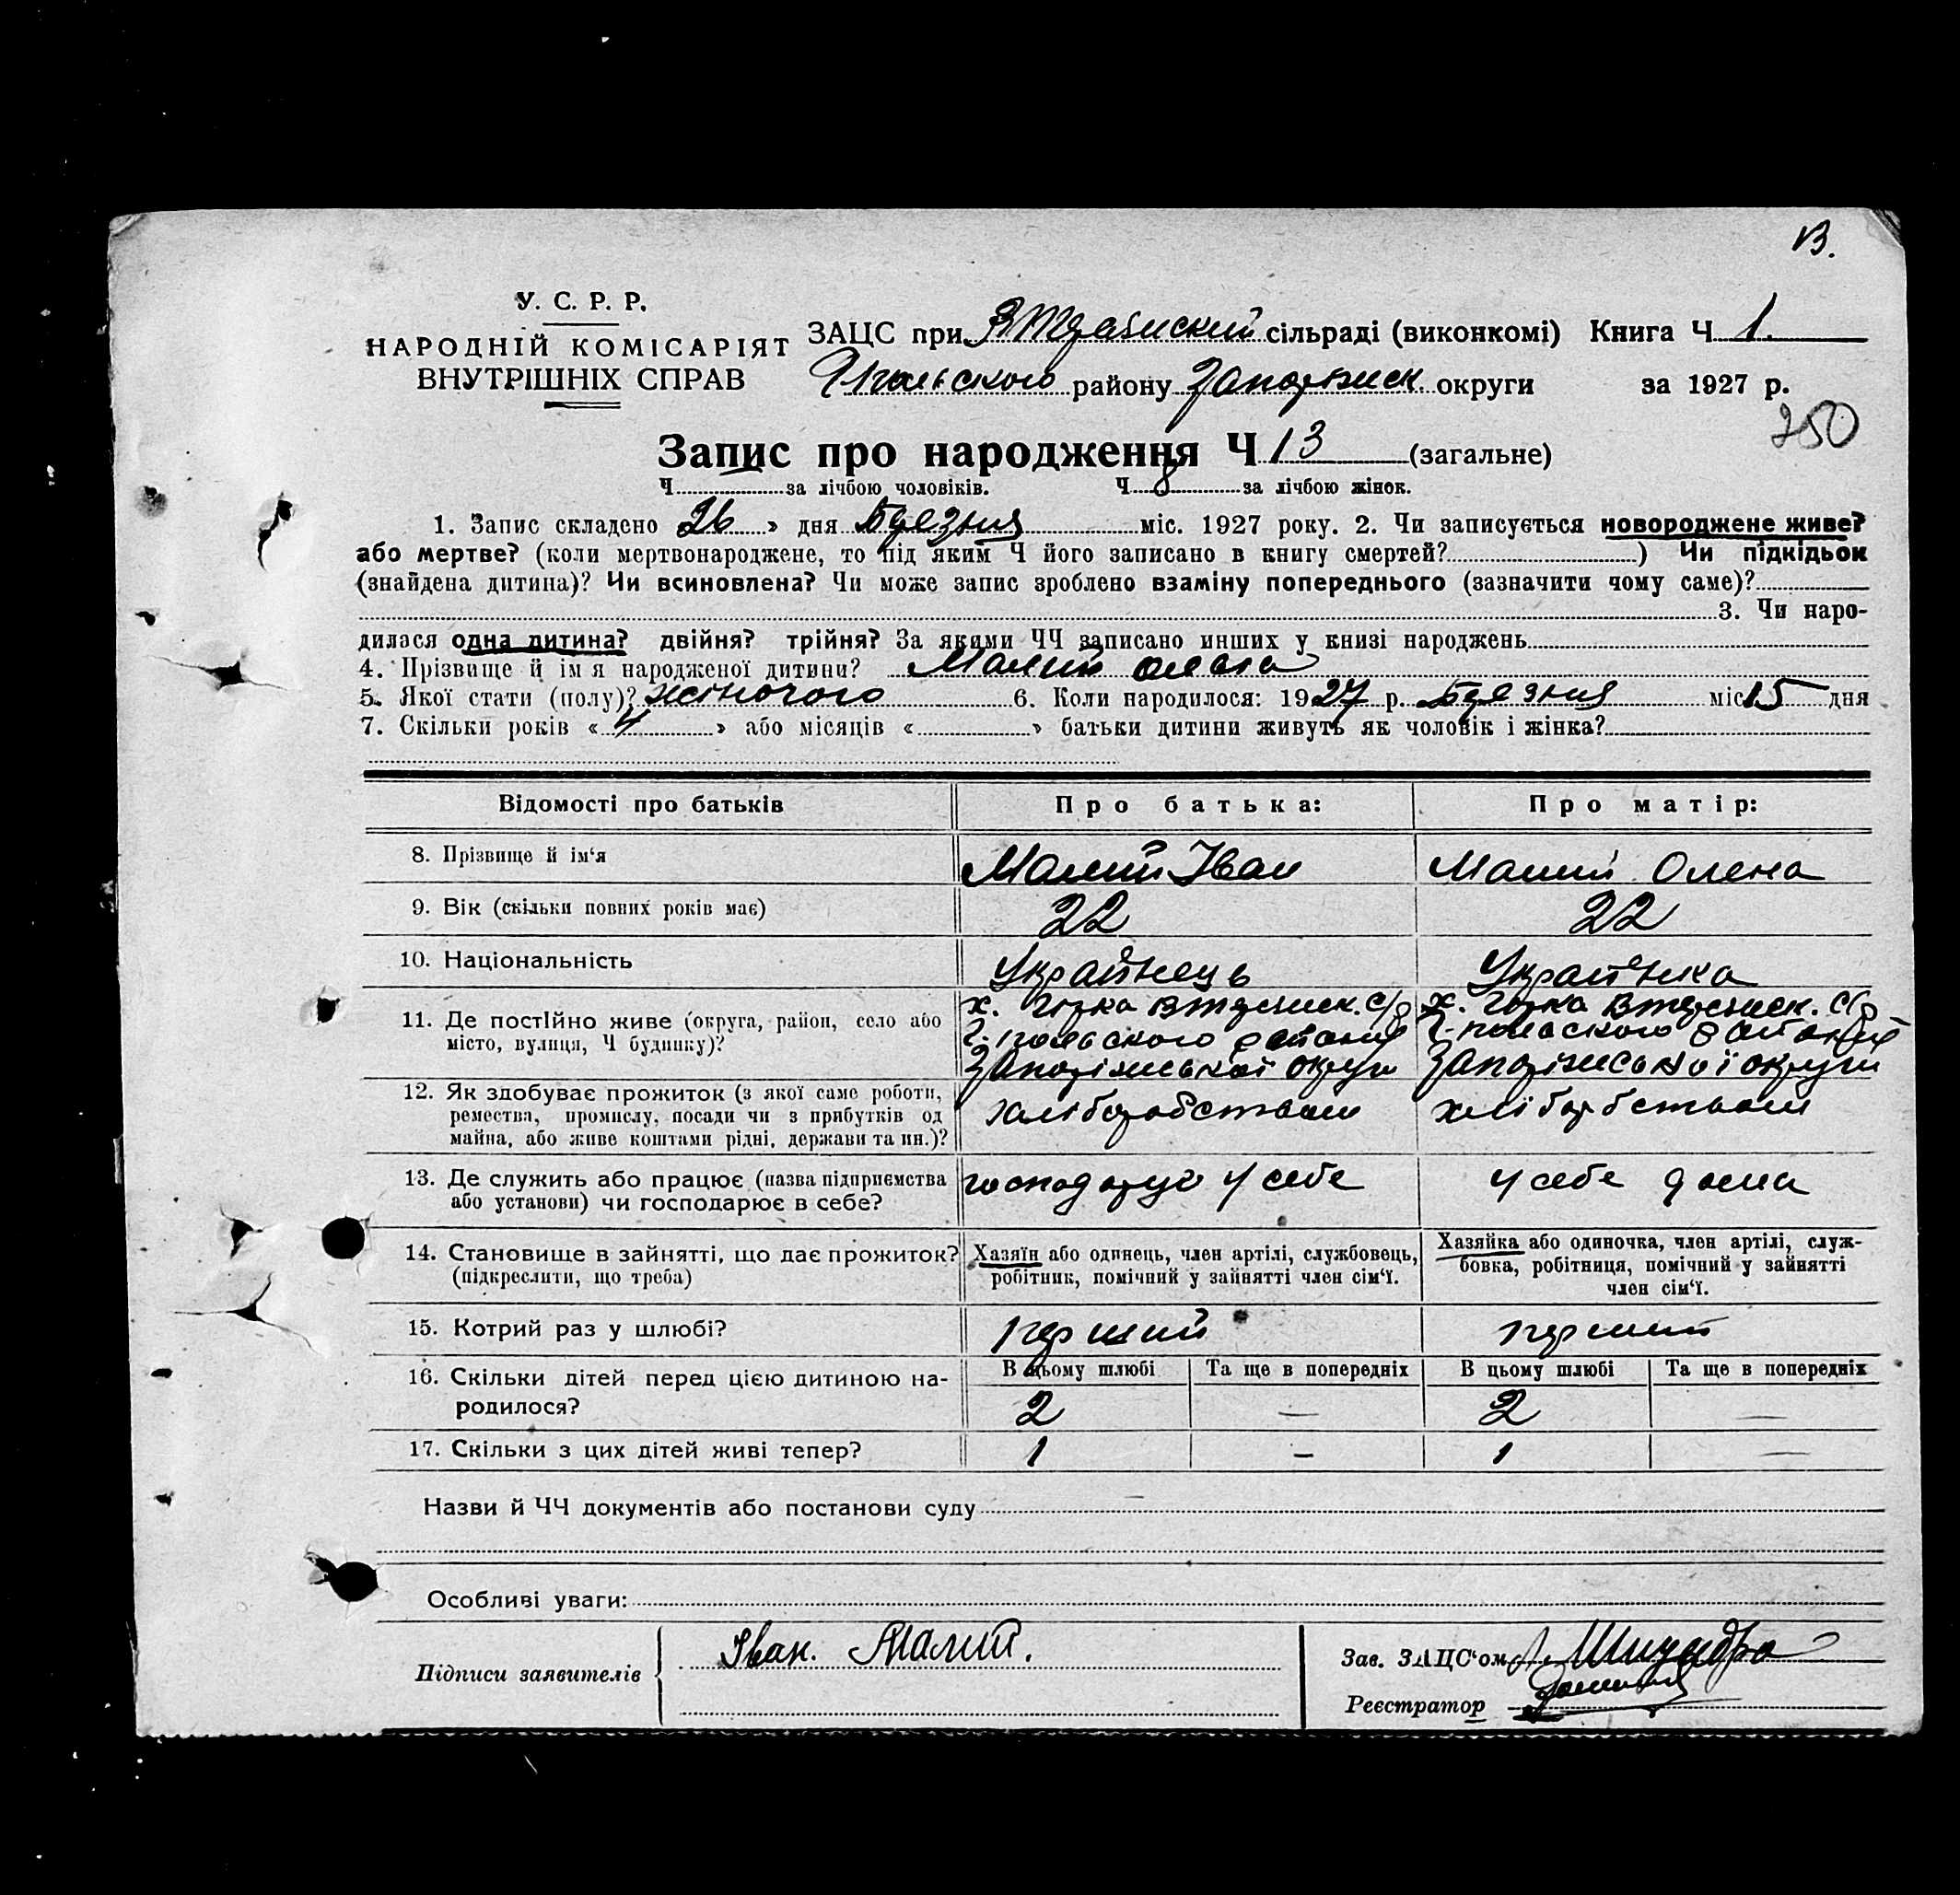 13.
У. С. Р. Р.
НАРОДНІЙ КОМІСАРІЯТ
ВНУТРІШНІХ СПРАВ
ЗАЦС при сільраді (виконкомі) Книга Ч 1.
району Запоріжськ округи за 1927 р.
250
Запис про народження Ч 13 (загальне)
Ч за лічбою чоловіків. Ч 8 за лічбою жінок.
1. Запис складено 26 » дня Березня міс. 1927 року. 2. Чи записується новороджене живе?
або мертве? (коли мертвонароджене, то під яким Ч його записано в книгу смертей? ) Чи підкідьок
(знайдена дитина)? Чи всиновлена? Чи може запис зроблено взаміну попереднього (зазначити чому саме)?
3. Чи наро-
дилася одна дитина? двійня? трійня? За якими ЧЧ записано инших у книзі народжень
4. Прізвище й ім я народженої дитини? Малий
5. Якої стати (полу)? жіночого 6. Коли народилося: 1927 р. Березня міс 15 дня
7. Скільки років « 4 » або місяців « » батьки дитини живуть як чоловік і жінка?
Відомості про батьків Про батька: Про матір:
8. Прізвище й ім‘я Малий Іван Малий Олена
9. Вік (скільки повних років має) 22 22
10. Національність Українець Українка
11. Де постійно живе (округа, район, село або
місто, вулиця, Ч будинку)?
х. с/р х. с/р
району району
Запоріжської округи Запоріжської округи
12. Як здобуває прожиток (з якої саме роботи,
ремества, промислу, посади чи з прибутків од
майна, або живе коштами рідні, держави та ин.)?
хліборобством хліборобством
13. Де служить або працює (назва підприємства
або установи) чи господарює в себе?
господарує у себе у себе дома
14. Становище в зайнятті, що дає прожиток?
(підкреслити, що треба)
Хазяїн або одинець, член артілі, службовець,
робітник, помічний у зайнятті член сім‘ї.
Хазяйка або одиночка, член артілі, служ-
бовка, робітниця, помічний у зайнятті
член сім‘ї.
15. Котрий раз у шлюбі? перший перший
16. Скільки дітей перед цією дитиною на-
родилося?
В цьому шлюбі Та ще в попередніх В цьому шлюбі Та ще в попередніх
2 — 2 —
17. Скільки з цих дітей живі тепер? 1 — 1 —
Назви й ЧЧ документів або постанови суду
Особливі уваги:
Підписи заявителів Іван. Малий.
Зав. ЗАЦС‘ом
Реєстратор